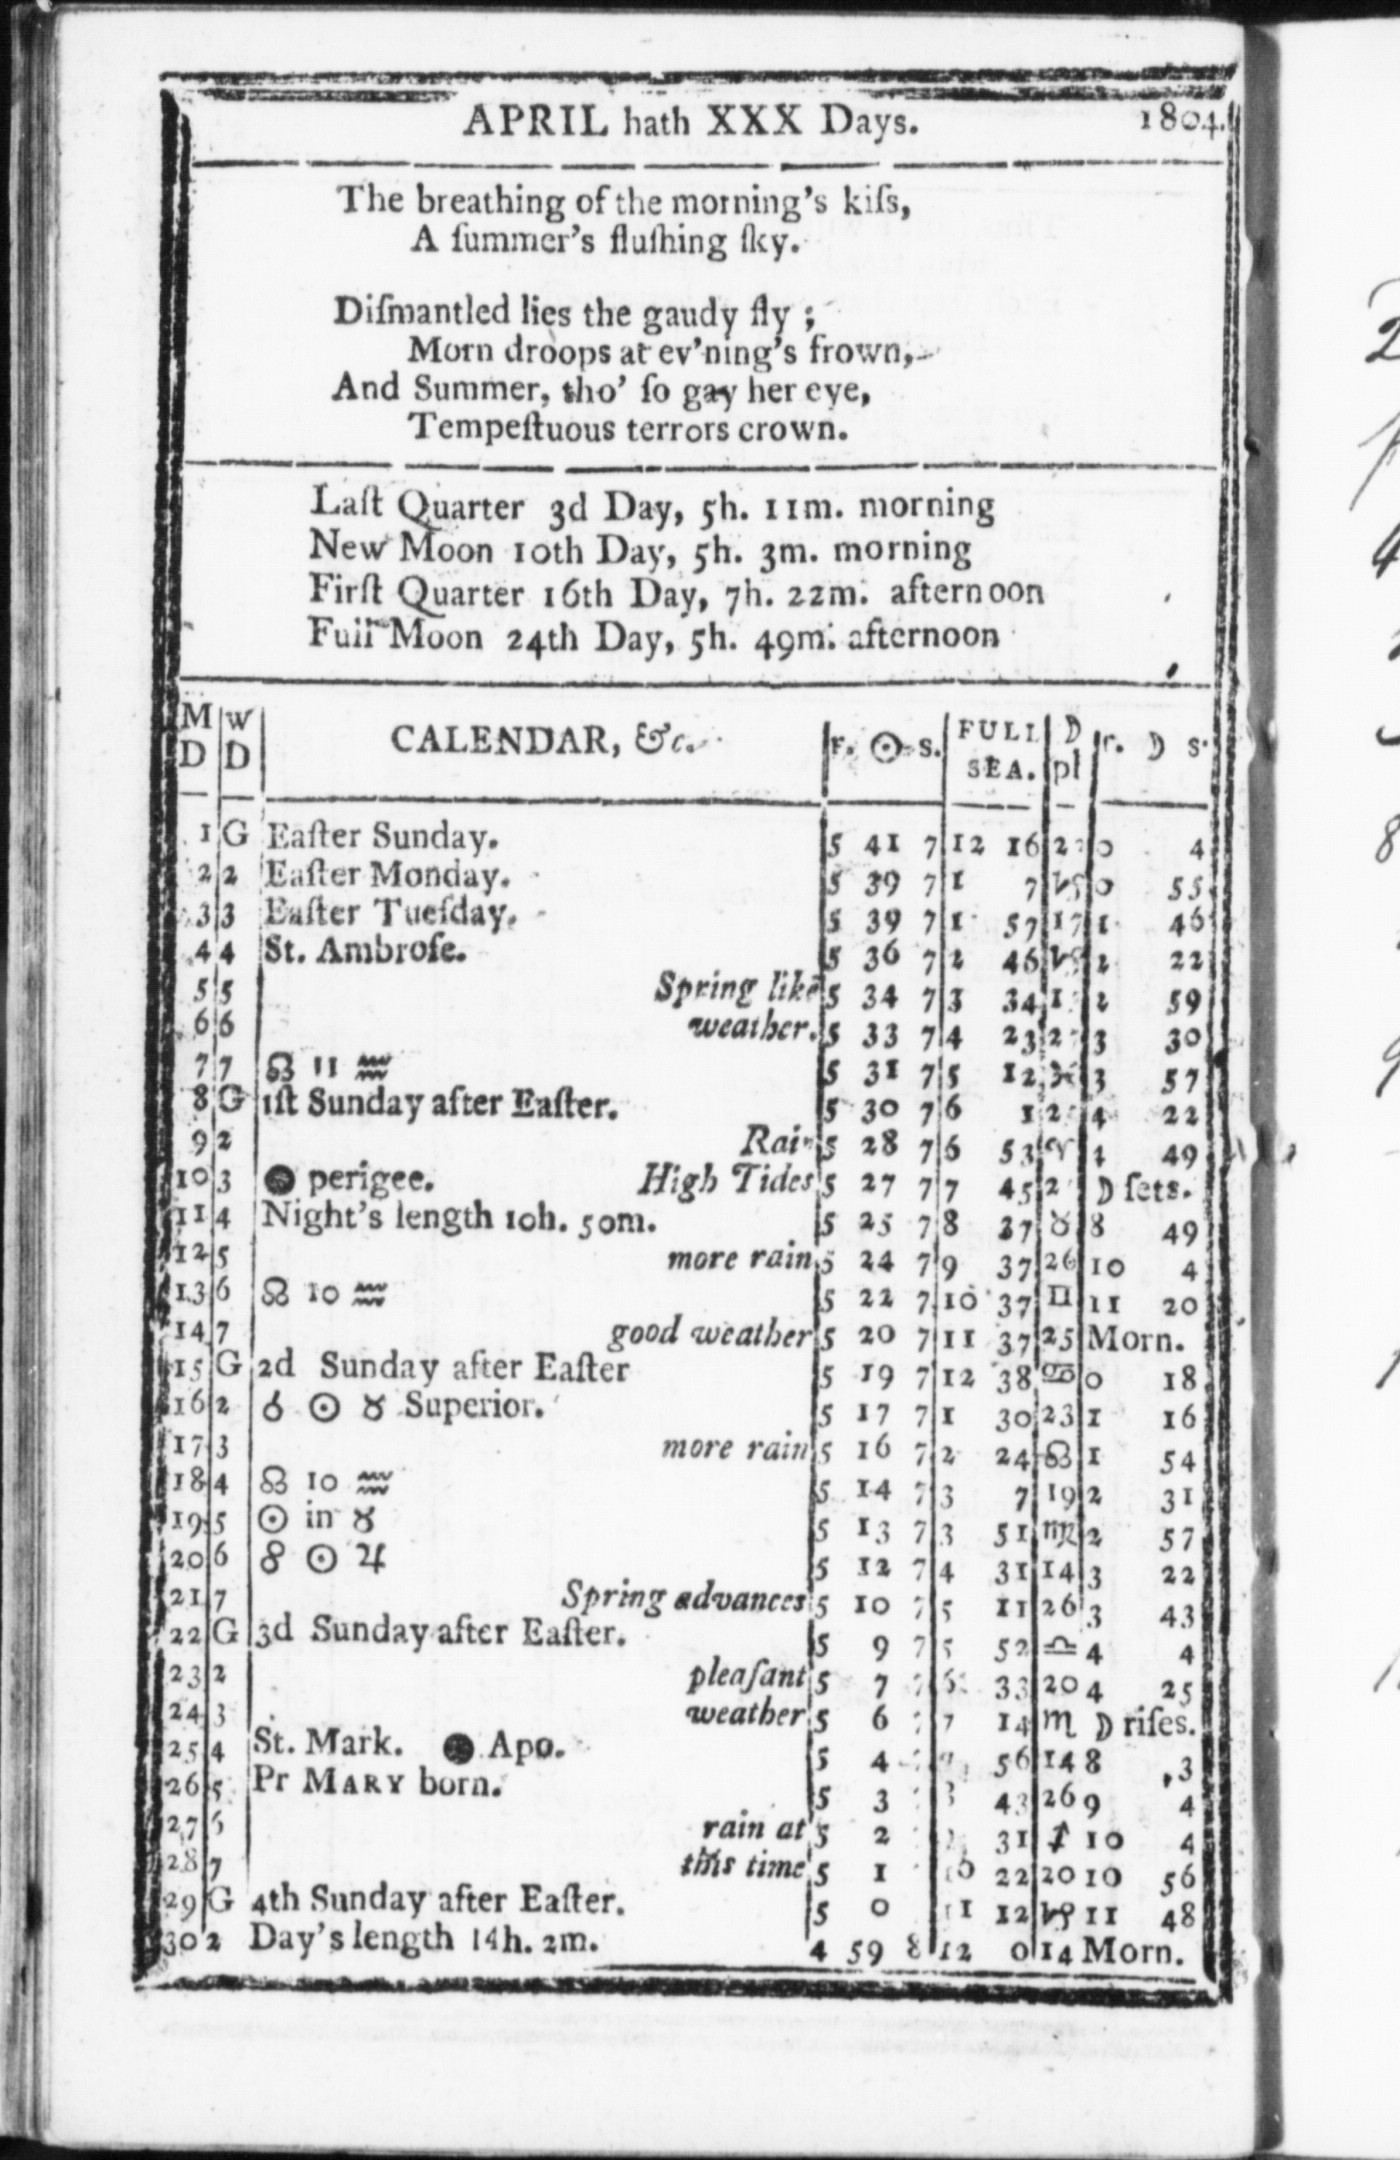 APRIL hath XXX Days. 1804.
The breathing of the morning's kiſs,
A ſummer's fluſhing ſky.
Diſmantled lies the gaudy fly ;
Morn droops at ev'ning's frown,
And Summer, tho' ſo gay her eye,
Tempeſtuous terrors crown.
Laſt Quarter 3d Day, 5h. 11m. morning
New Moon 10th Day, 5h. 3m. morning
Firſt Quarter 16th Day, 7h. 22m. afternoon
Full Moon 24th Day, 5h. 49m. afternoon
M D W D CALENDAR, &c. r. ☉ s. FULL SEA. ☽ pl r. ☽ s.
1 G Eaſter Sunday. 5 41 7 12 16 0 4
2 2 Eaſter Monday. 5 39 7 1 7 ♑ 0 55
3 3 Eaſter Tueſday. 5 39 7 1 57 17 1 46
4 4 St. Ambroſe. 5 36 7 2 46 ♑ 2 22
5 5 Spring like 5 34 7 3 34 2 59
6 6 weather. 5 33 7 4 23 3 30
7 7 ☊ 11 ♒ 5 31 7 5 12 ♓ 3 57
8 G 1ſt Sunday after Eaſter. 5 30 7 6 1 4 22
9 2 Rain 5 28 7 6 53 ♈ 4 49
10 3 ● perigee. High Tides 5 27 7 7 45 ☽ ſets.
11 4 Night's length 10h. 50m. 5 25 7 8 37 ♉ 8 49
12 5 more rain 5 24 7 9 37 26 10 4
13 6 ☊ 10 ♒ 5 22 7 10 37 ♊ 11 20
14 7 good weather 5 20 7 11 37 25 Morn.
15 G 2d Sunday after Eaſter 5 19 7 12 38 ♋ 0 18
16 2 ☌ ☉ ♉ Superior. 5 17 7 1 30 23 1 16
17 3 more rain 5 16 7 2 24 ☊ 1 54
18 4 ☊ 10 ♒ 5 14 7 3 7 19 2 31
19 5 ☉ in ♉ 5 13 7 3 51 ♍ 2 57
20 6 ☍ ☉ ♃ 5 12 7 4 31 14 3 22
21 7 Spring advances 5 10 7 5 11 26 3 43
22 G 3d Sunday after Eaſter. 5 9 7 5 52 ♎ 4 4
23 2 pleaſant 5 7 6 33 20 4 25
24 3 weather 5 6 7 14 ♏ ☽ riſes.
25 4 St. Mark. ● Apo. 5 4 56 14 8 3
26 5 Pr MARY born. 5 3 43 26 9 4
27 6 rain at 5 2 31 ♐ 10 4
28 7 this time 5 1 10 22 20 10 56
29 G 4th Sunday after Eaſter. 5 0 11 12 ♑ 11 48
30 2 Day's length 14h. 2m. 4 59 8 12 0 14 Morn.